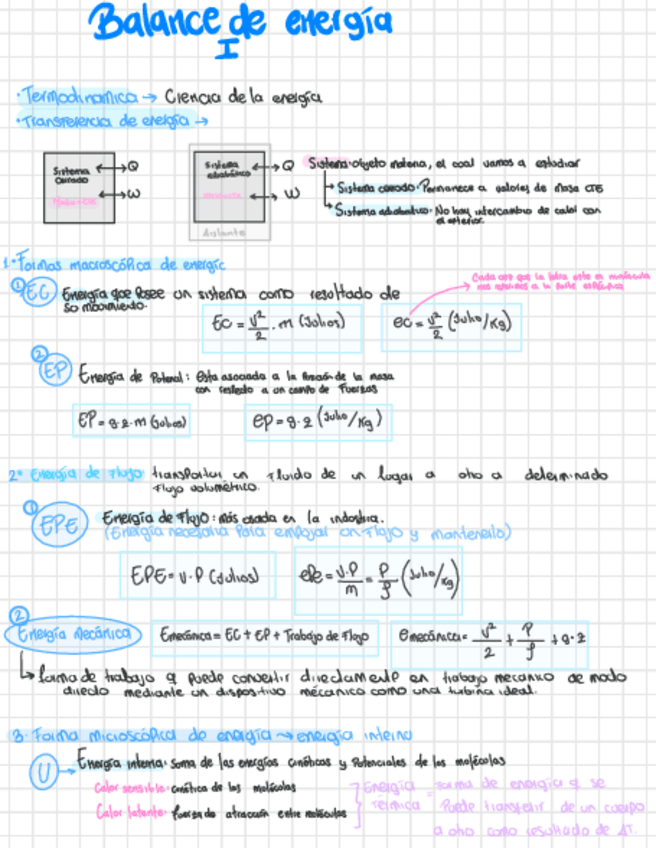 Balance de energía
I
• Termodinamica → Ciencia de la energía
• Transferencia de energía →
Sistema cerrado
Q
W
Sistema adiabático
Q
W
Aislante
Sistema: objeto materia, el cual vamos a estudiar
Sistema cerrado: Permanece a valores de masa CTE
Sistema adiabatico: No hay intercambio de calor con
el exterior.
1. Formas macroscópica de energía
① EC Energía que Posee un sistema como resultado de
so movimiento.
Cada vez que la letra este en minúscula
nos referimos a la parte específica
EC = v²/2 · m (Julios)
ec = v²/2 (Julio/kg)
② EP Energía de Potencial: Esta asociada a la Posición de la masa
con respecto a un campo de Fuerzas
EP = g·z·m (Julios)
ep = g·z (Julio/kg)
2º Energía de Flujo: transportar un fluido de un lugar a otro a determinado
Flujo volumétrico.
① EPE Energía de Flujo: Más usada en la industria.
(Energía necesaria Para empujar un Flujo y mantenerlo)
EPE = V·P (Julios)
epe = V·P/m = P/ρ (Julio/kg)
② Energía Mecánica
Emecánica = EC + EP + Trabajo de Flujo
emecánica = v²/2 + P/ρ + g·z
forma de trabajo q puede convertir directamente en trabajo mecanico de modo
directo mediante un dispositivo mecanico como una turbina ideal.
3. Forma microscópica de energía → energía interna
U → Energía interna: Soma de las energías cinéticas y Potenciales de las moléculas
Calor sensible: cinética de las moléculas
Calor latente: fuerza de atracción entre moléculas
Energía térmica = forma de energía q se
Puede transferir de un cuerpo
a otro como resultado de ΔT.